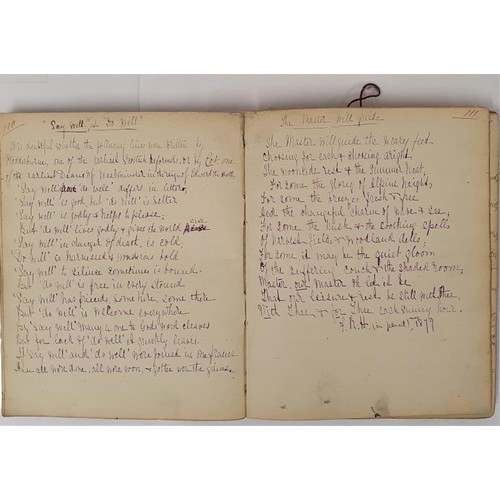 110
"Say Well," & Do Well"
It is doubtful whether the following lines were written by
Wedderburne, one of the earliest Scottish Reformers, or by Cox one
of the earliest Deans of Westminster in the reign of Edward the Sixth.
"Say Well" and "do well" differs in letter,
"Say well" is good but "do well" is better
"Say well" is godly & helps to please;
But "do well" lives godly & gives the world ease
"Say well" in danger of death is cold
"Do well" is harnessed & wondrous bold
"Say well" to silence sometimes is bound
But "do well" is free in every stound
"Say well" has friends some here, some there
But "do well" is welcome everywhere
By "Say well" many a one to God's word cleaves
But for lack of "do well" it quickly leaves.
If "Say well" and "do well" were joined in one frame
Then all were done, all were won, & gotten were the gains.
111
The Master will guide
The Master will guide the weary feet
Choosing for each & choosing aright
The noontide rest & the Summer heat,
For some the glory of Alpine height,
For some the breezes fresh & free
And the changeful charm of wave & sea;
For some the hush & the soothing spells
Of harvest fields & woodland dells;
For some it may be the quiet gloom
Of the suffering couch & the shaded room,
Master, our Master oh let it be
That our leisure & rest be still with Thee,
With Thee, & for Thee each sunny hour.
F. R. H. (in pencil) 1879